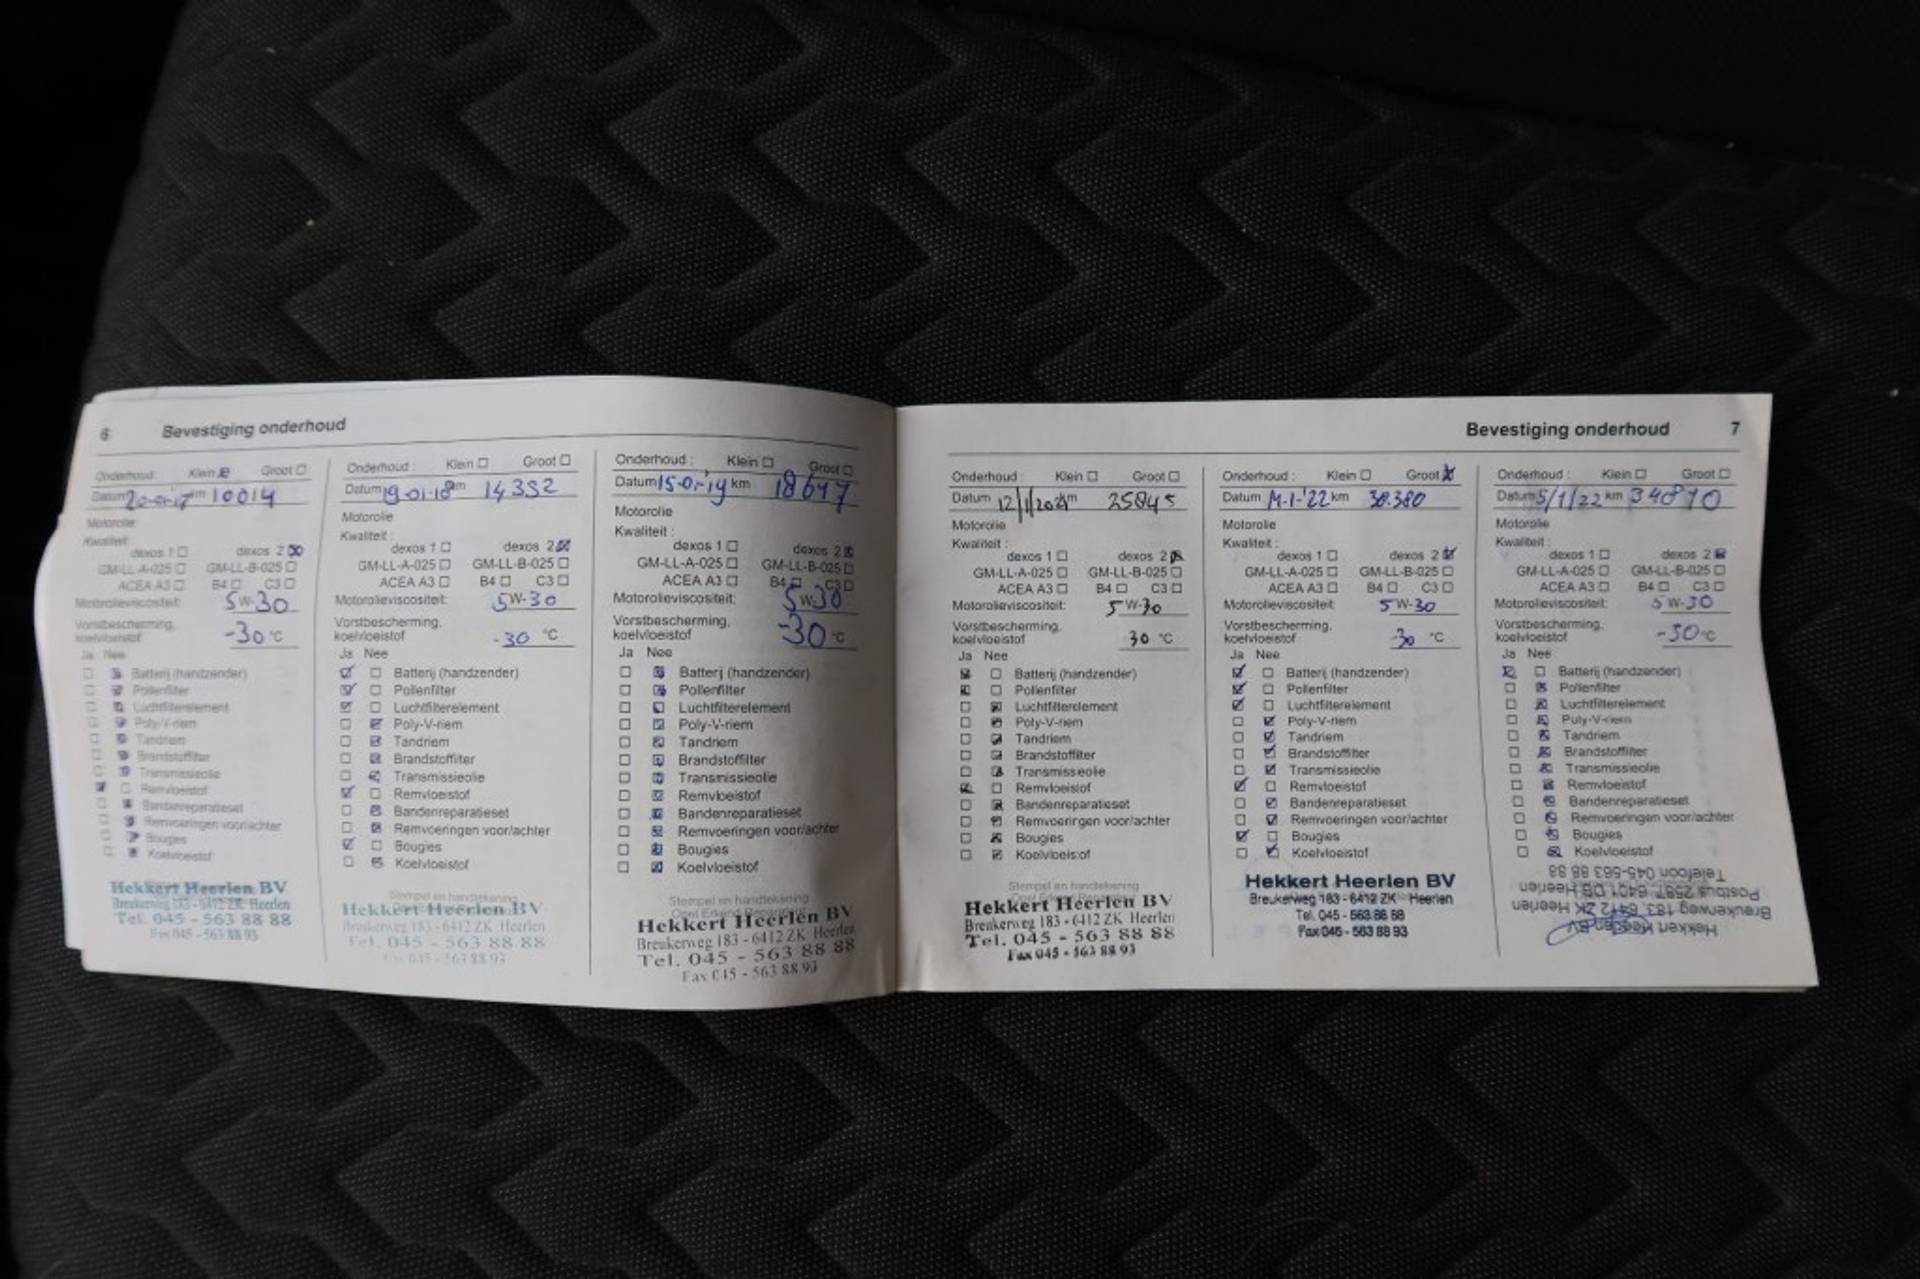 6 Bevestiging onderhoud
Onderhoud: Klein Groot
Datum km 10014
Motorolie
Kwaliteit:
dexos 1 dexos 2
GM-LL-A-025 GM-LL-B-025
ACEA A3 B4 C3
Motorolieviscositeit: 5W-30
Vorstbescherming,
koelvloeistof -30 °C
Ja Nee
Batterij (handzender)
Pollenfilter
Luchtfilterelement
Poly-V-riem
Tandriem
Brandstoffilter
Transmissieolie
Remvloeistof
Bandenreparatieset
Remvoeringen voor/achter
Bougies
Koelvloeistof
Hekkert Heerlen BV
Breukerweg 183 - 6412 ZK Heerlen
Tel. 045 - 563 88 88
Fax 045 - 563 88 93
Onderhoud: Klein Groot
Datum 19-01-18 km 14352
Motorolie
Kwaliteit:
dexos 1 dexos 2
GM-LL-A-025 GM-LL-B-025
ACEA A3 B4 C3
Motorolieviscositeit: 5W-30
Vorstbescherming,
koelvloeistof -30 °C
Ja Nee
Batterij (handzender)
Pollenfilter
Luchtfilterelement
Poly-V-riem
Tandriem
Brandstoffilter
Transmissieolie
Remvloeistof
Bandenreparatieset
Remvoeringen voor/achter
Bougies
Koelvloeistof
Stempel en handtekening
Hekkert Heerlen BV
Breukerweg 183 - 6412 ZK Heerlen
Tel. 045 - 563 88 88
Fax 045 - 563 88 93
Onderhoud: Klein Groot
Datum km 18647
Motorolie
Kwaliteit:
dexos 1 dexos 2
GM-LL-A-025 GM-LL-B-025
ACEA A3 B4 C3
Motorolieviscositeit: 5W-30
Vorstbescherming,
koelvloeistof -30 °C
Ja Nee
Batterij (handzender)
Pollenfilter
Luchtfilterelement
Poly-V-riem
Tandriem
Brandstoffilter
Transmissieolie
Remvloeistof
Bandenreparatieset
Remvoeringen voor/achter
Bougies
Koelvloeistof
Stempel en handtekening
Opel Erkend Reparateur
Hekkert Heerlen BV
Breukerweg 183 - 6412 ZK Heerlen
Tel. 045 - 563 88 88
Fax 045 - 563 88 93
Bevestiging onderhoud 7
Onderhoud: Klein Groot
Datum 12/1/2021 km 25845
Motorolie
Kwaliteit:
dexos 1 dexos 2
GM-LL-A-025 GM-LL-B-025
ACEA A3 B4 C3
Motorolieviscositeit: 5W-30
Vorstbescherming,
koelvloeistof 30 °C
Ja Nee
Batterij (handzender)
Pollenfilter
Luchtfilterelement
Poly-V-riem
Tandriem
Brandstoffilter
Transmissieolie
Remvloeistof
Bandenreparatieset
Remvoeringen voor/achter
Bougies
Koelvloeistof
Stempel en handtekening
Hekkert Heerlen BV
Breukerweg 183 - 6412 ZK Heerlen
Tel. 045 - 563 88 88
Fax 045 - 563 88 93
Onderhoud: Klein Groot
Datum km 30.380
Motorolie
Kwaliteit:
dexos 1 dexos 2
GM-LL-A-025 GM-LL-B-025
ACEA A3 B4 C3
Motorolieviscositeit: 5W-30
Vorstbescherming,
koelvloeistof -30 °C
Ja Nee
Batterij (handzender)
Pollenfilter
Luchtfilterelement
Poly-V-riem
Tandriem
Brandstoffilter
Transmissieolie
Remvloeistof
Bandenreparatieset
Remvoeringen voor/achter
Bougies
Koelvloeistof
Hekkert Heerlen BV
Breukerweg 183 - 6412 ZK Heerlen
Tel. 045 - 563 88 88
Fax 045 - 563 88 93
Onderhoud: Klein Groot
Datum 5/1/22 km 34870
Motorolie
Kwaliteit:
dexos 1 dexos 2
GM-LL-A-025 GM-LL-B-025
ACEA A3 B4 C3
Motorolieviscositeit: 5W-30
Vorstbescherming,
koelvloeistof -30 °C
Ja Nee
Batterij (handzender)
Pollenfilter
Luchtfilterelement
Poly-V-riem
Tandriem
Brandstoffilter
Transmissieolie
Remvloeistof
Bandenreparatieset
Remvoeringen voor/achter
Bougies
Koelvloeistof
Hekkert Heerlen BV
Breukerweg 183, 6412 ZK Heerlen
Postbus 2587, 6401 DB Heerlen
Telefoon 045-563 88 88